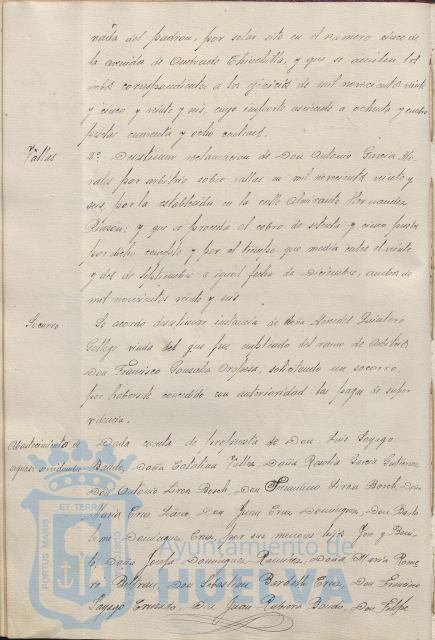 riada del padron, por solar sito en el numero cinco de
la avenida de Andrade Chinchilla, y que se anulen los
recibos correspondientes a los ejercicios de mil novecientos veinte
y cinco y veinte y seis, cuyo importe asciende a ochenta y cuatro
pesetas cuarenta y ocho centimos.
Vallas
2º Desestimar reclamacion de Don Antonio Garcia Mo-
rales por arbitrio sobre vallas en mil novecientos veinte y
seis, por la establecida en la calle Almirante Hernandez
Pinzon; y que se proceda al cobro de setenta y cinco pesetas
por dicho concepto y por el trimestre que media entre el veinte
y dos de Septiembre e igual fecha de Diciembre, ambos de
mil novecientos veinte y seis
Socorro
Se acordó desestimar instancia de Doña Mercedes Quintero
Gallego, viuda del que fué empleado del ramo de Arbitrios
Don Francisco Gonzalez Oropesa, solicitando un socorro,
por habersele concedido con anterioridad las pagas de super-
vivencia.
Abastecimiento de
aguas. servidumbre
Dada cuenta de la respuesta de Don Luis Sayago
Bando, Doña Catalina Vallez, Doña Rosalia Garcia Gutierrez
Don Antonio Liroa Borch, Don Liroa Borch, Doña
Maria Cruz, Don Juan Cruz Dominguez, Don Barto-
lomé Dominguez Cruz, por sus menores hijos José y Beni-
to, Doña Josefa Dominguez Ramirez, Doña Maria Rome-
ro Beltran, Don Sebastian Cruz, Don Francisco
Sayago, Don Juan Bando, Don Felipe
PORTUS MARIS ET TERRÆ
Ayuntamiento de
HUELVA